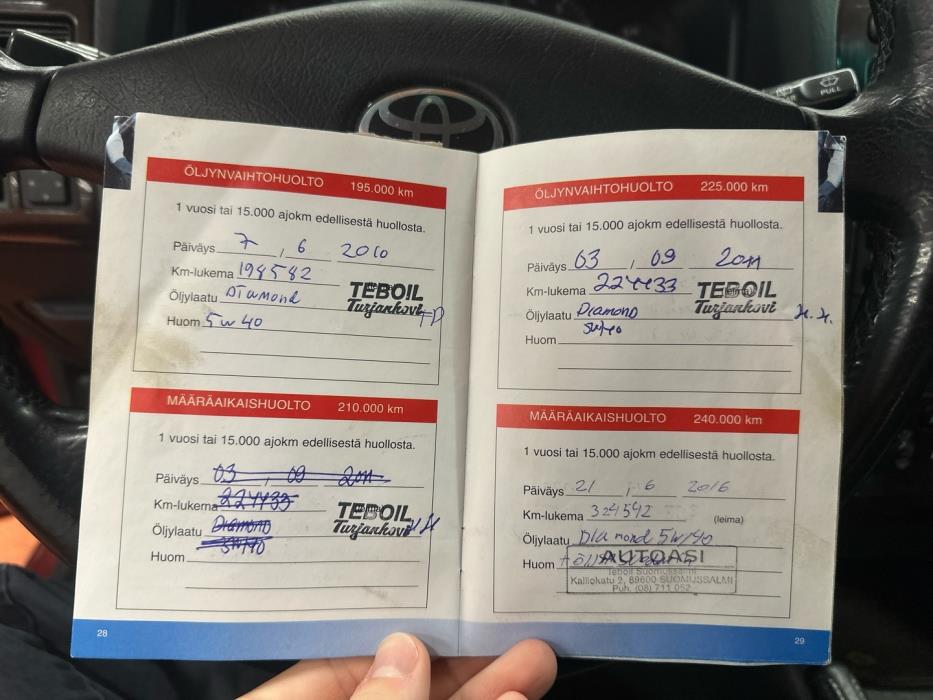 PULL
ÖLJYNVAIHTOHUOLTO 195.000 km
1 vuosi tai 15.000 ajokm edellisestä huollosta.
Päiväys 7 , 6 2010
Km-lukema 198582
Öljylaatu Diamond
TEBOIL
Turjankovi
Huom 5W40
MÄÄRÄAIKAISHUOLTO 210.000 km
1 vuosi tai 15.000 ajokm edellisestä huollosta.
Päiväys 03 , 09 2011
Km-lukema 224433
Öljylaatu Diamond
TEBOIL
Turjankovi
5W40
Huom
28
ÖLJYNVAIHTOHUOLTO 225.000 km
1 vuosi tai 15.000 ajokm edellisestä huollosta.
Päiväys 03 , 09 2011
Km-lukema 224433
Öljylaatu Diamond
TEBOIL
Turjankovi
5W40
Huom
MÄÄRÄAIKAISHUOLTO 240.000 km
1 vuosi tai 15.000 ajokm edellisestä huollosta.
Päiväys 21 , 6 2016
Km-lukema 324542
(leima)
Öljylaatu Diamond 5W/40
Huom
AUTOASI
Teboil Suomussalmi
Kalliokatu 2, 89600 SUOMUSSALMI
Puh. (08) 711 052
29